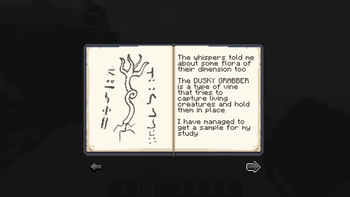 The whispers told me
about some flora of
their dimension too
The DUSKY GRABBER
is a type of vine
that tries to
capture living
creatures and hold
them in place
I have managed to
get a sample for my
study